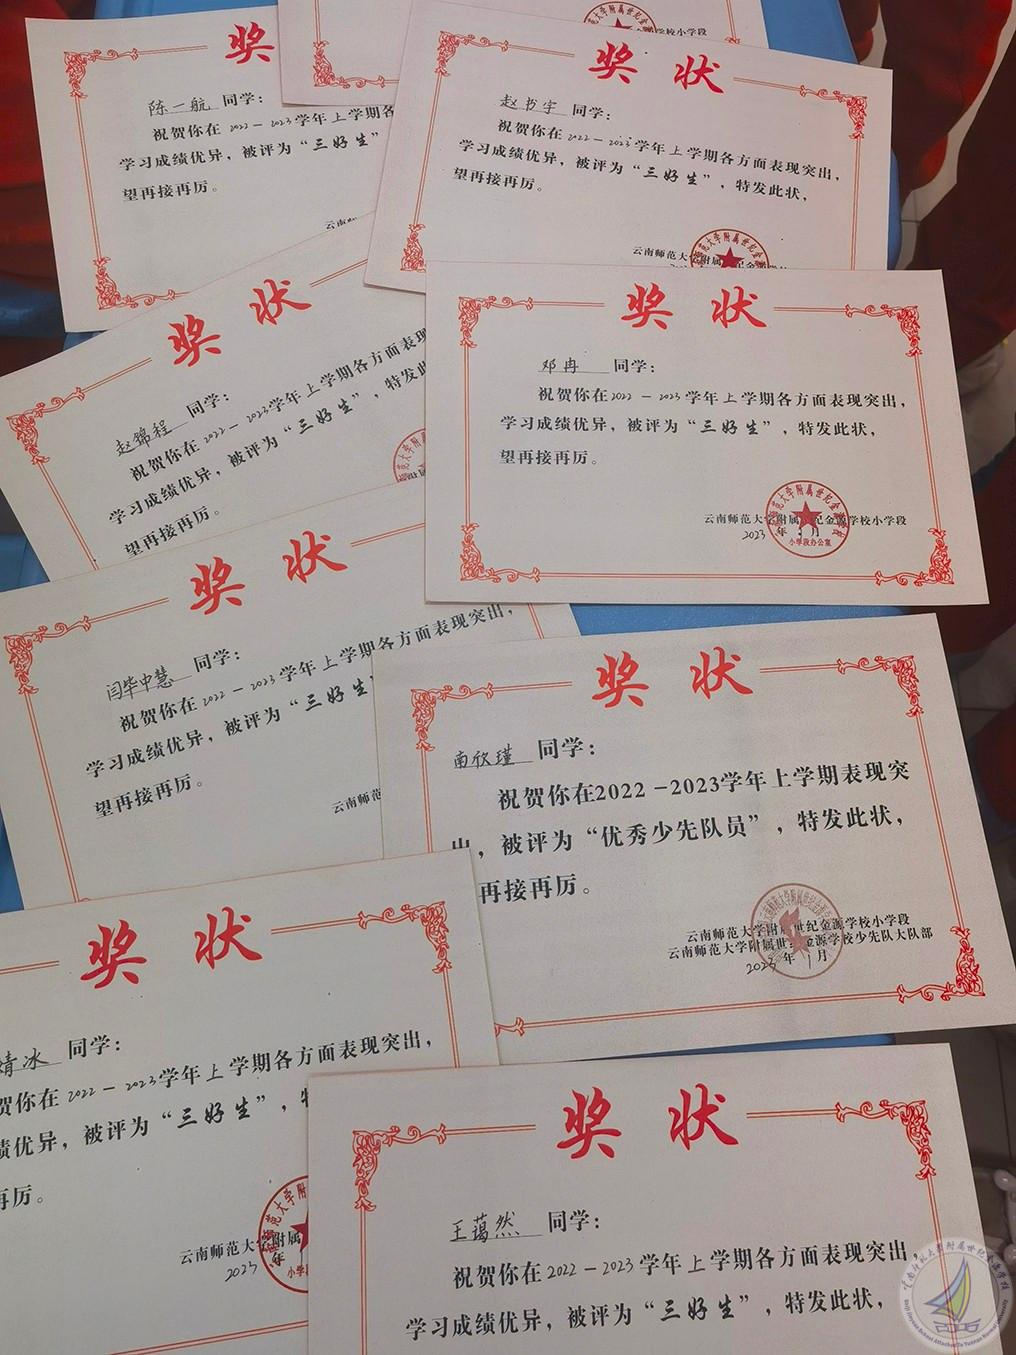 学校小学段
奖
陈一航 同学：
祝贺你在 2022－2023学年上学期
学习成绩优异，被评为“三好生”
望再接再厉。
云南师
奖 状
赵书宇 同学：
祝贺你在2022－2023学年上学期各方面表现突出，
学习成绩优异，被评为“三好生”，特发此状，
望再接再厉。
云南师范大学附属世纪金源
奖 状
赵锦程 同学：
祝贺你在2022－2023学年上学期各方面表现
学习成绩优异，被评为“三好生”，特发此
望再接再厉。
奖 状
邓冉 同学：
祝贺你在2022－2023学年上学期各方面表现突出，
学习成绩优异，被评为“三好生”，特发此状，
望再接再厉。
云南师范大学附属世纪金源学校小学段
2023 年 1 月
小学段办公室
奖 状
闫毕中慧 同学：
祝贺你在2022－2023学年上学期各方面表现突出，
学习成绩优异，被评为“三好生
望再接再厉。
云南师范
奖 状
南欣瑾 同学：
祝贺你在2022－2023学年上学期表现突
出，被评为“优秀少先队员”，特发此状，
再接再厉。
云南师范大学附属世纪金源学校小学段
云南师范大学附属世纪金源学校少先队大队部
2023 年 1 月
奖 状
婧冰 同学：
贺你在 2022－2023学年上学期各方面表现突出，
绩优异，被评为“三好生”，特
再厉。
云南师范大学附属
2023 年
奖 状
王蔼然 同学：
祝贺你在2022－2023学年上学期各方面表现突出，
学习成绩优异，被评为“三好生”，特发此状，
云南师范大学附属世纪金源学校